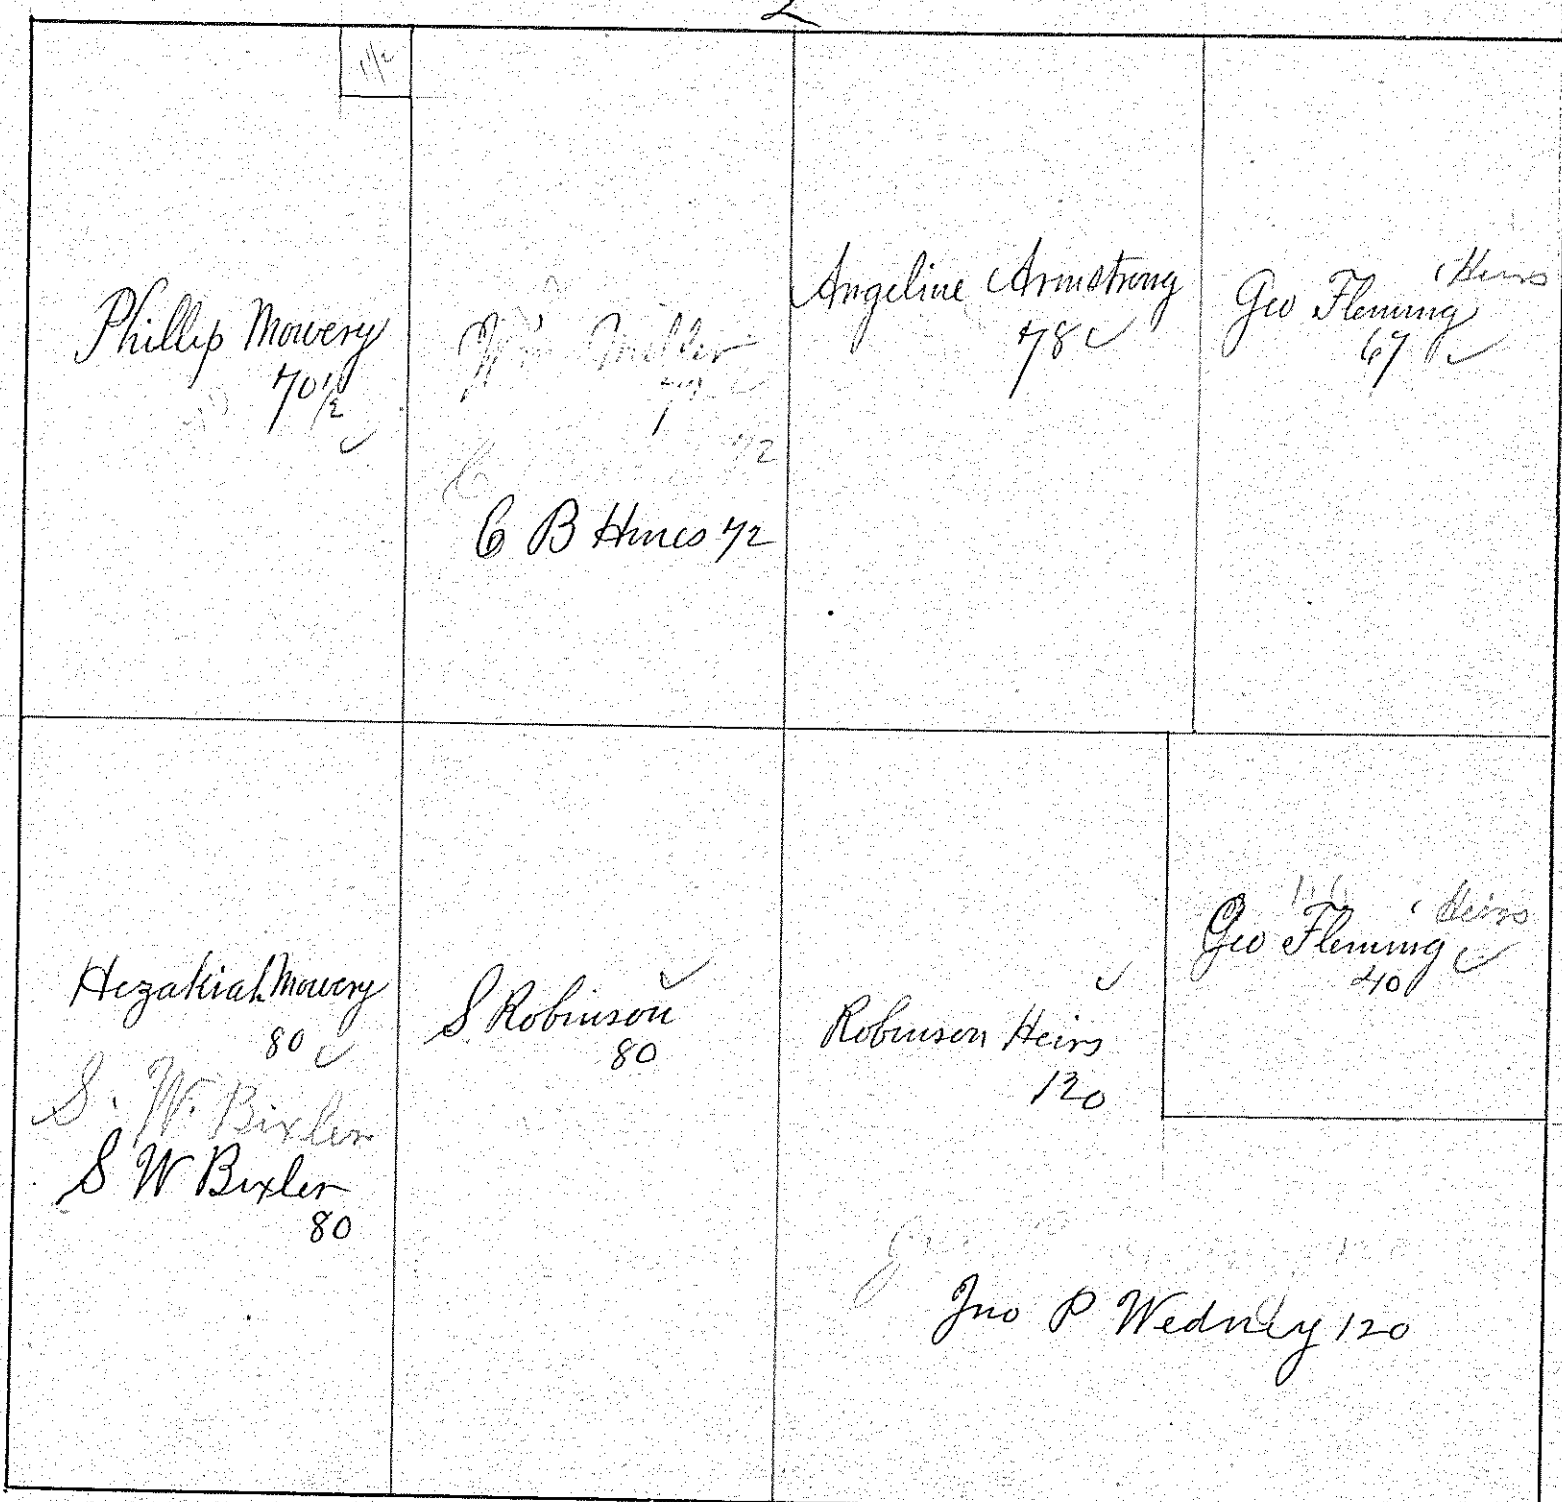 2
1 1/2
Phillip Mowery
70 1/2
Wm Miller
72
C B Hines 72
Angeline Armstrong
78
Geo Fleming Heirs
67
Hezakiah Mowery
80
S. W. Bixler
S W Bixler
80
S Robinson
80
Robinson Heirs
120
Geo Fleming Heirs
40
Jno P Wednly 120